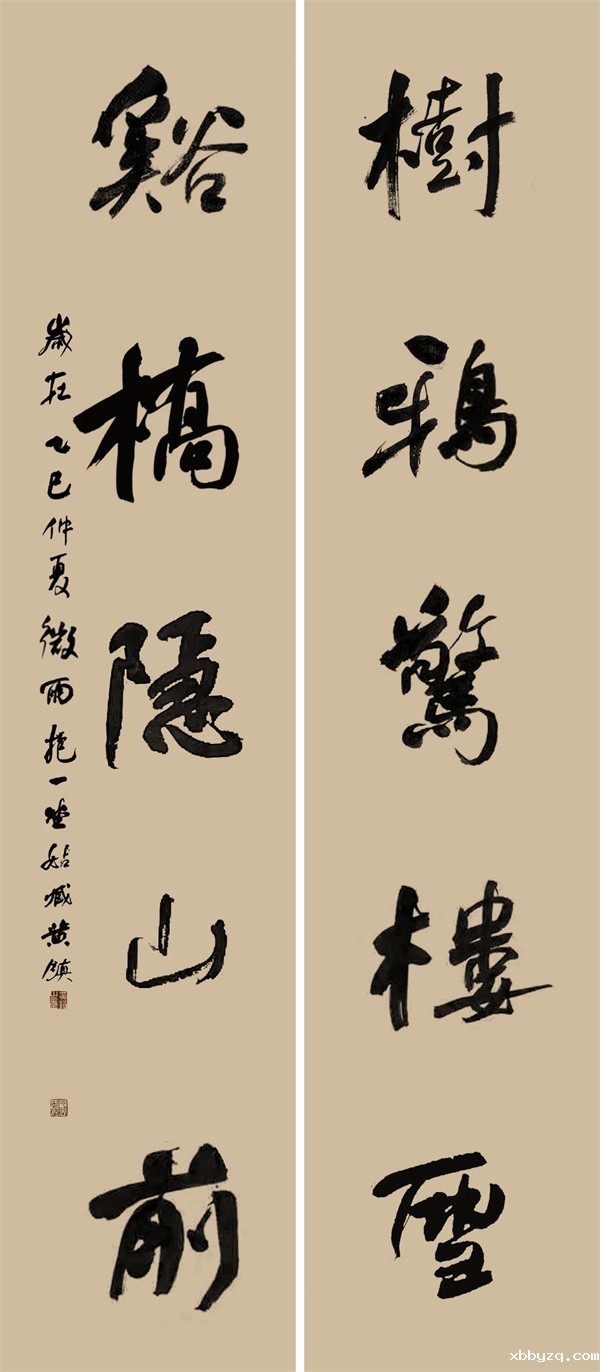 樹鴉驚樓雪
谿橋隱山前
歲在乙巳仲夏微雨抱一堂姑臧黃鎮
xbbyzq.com